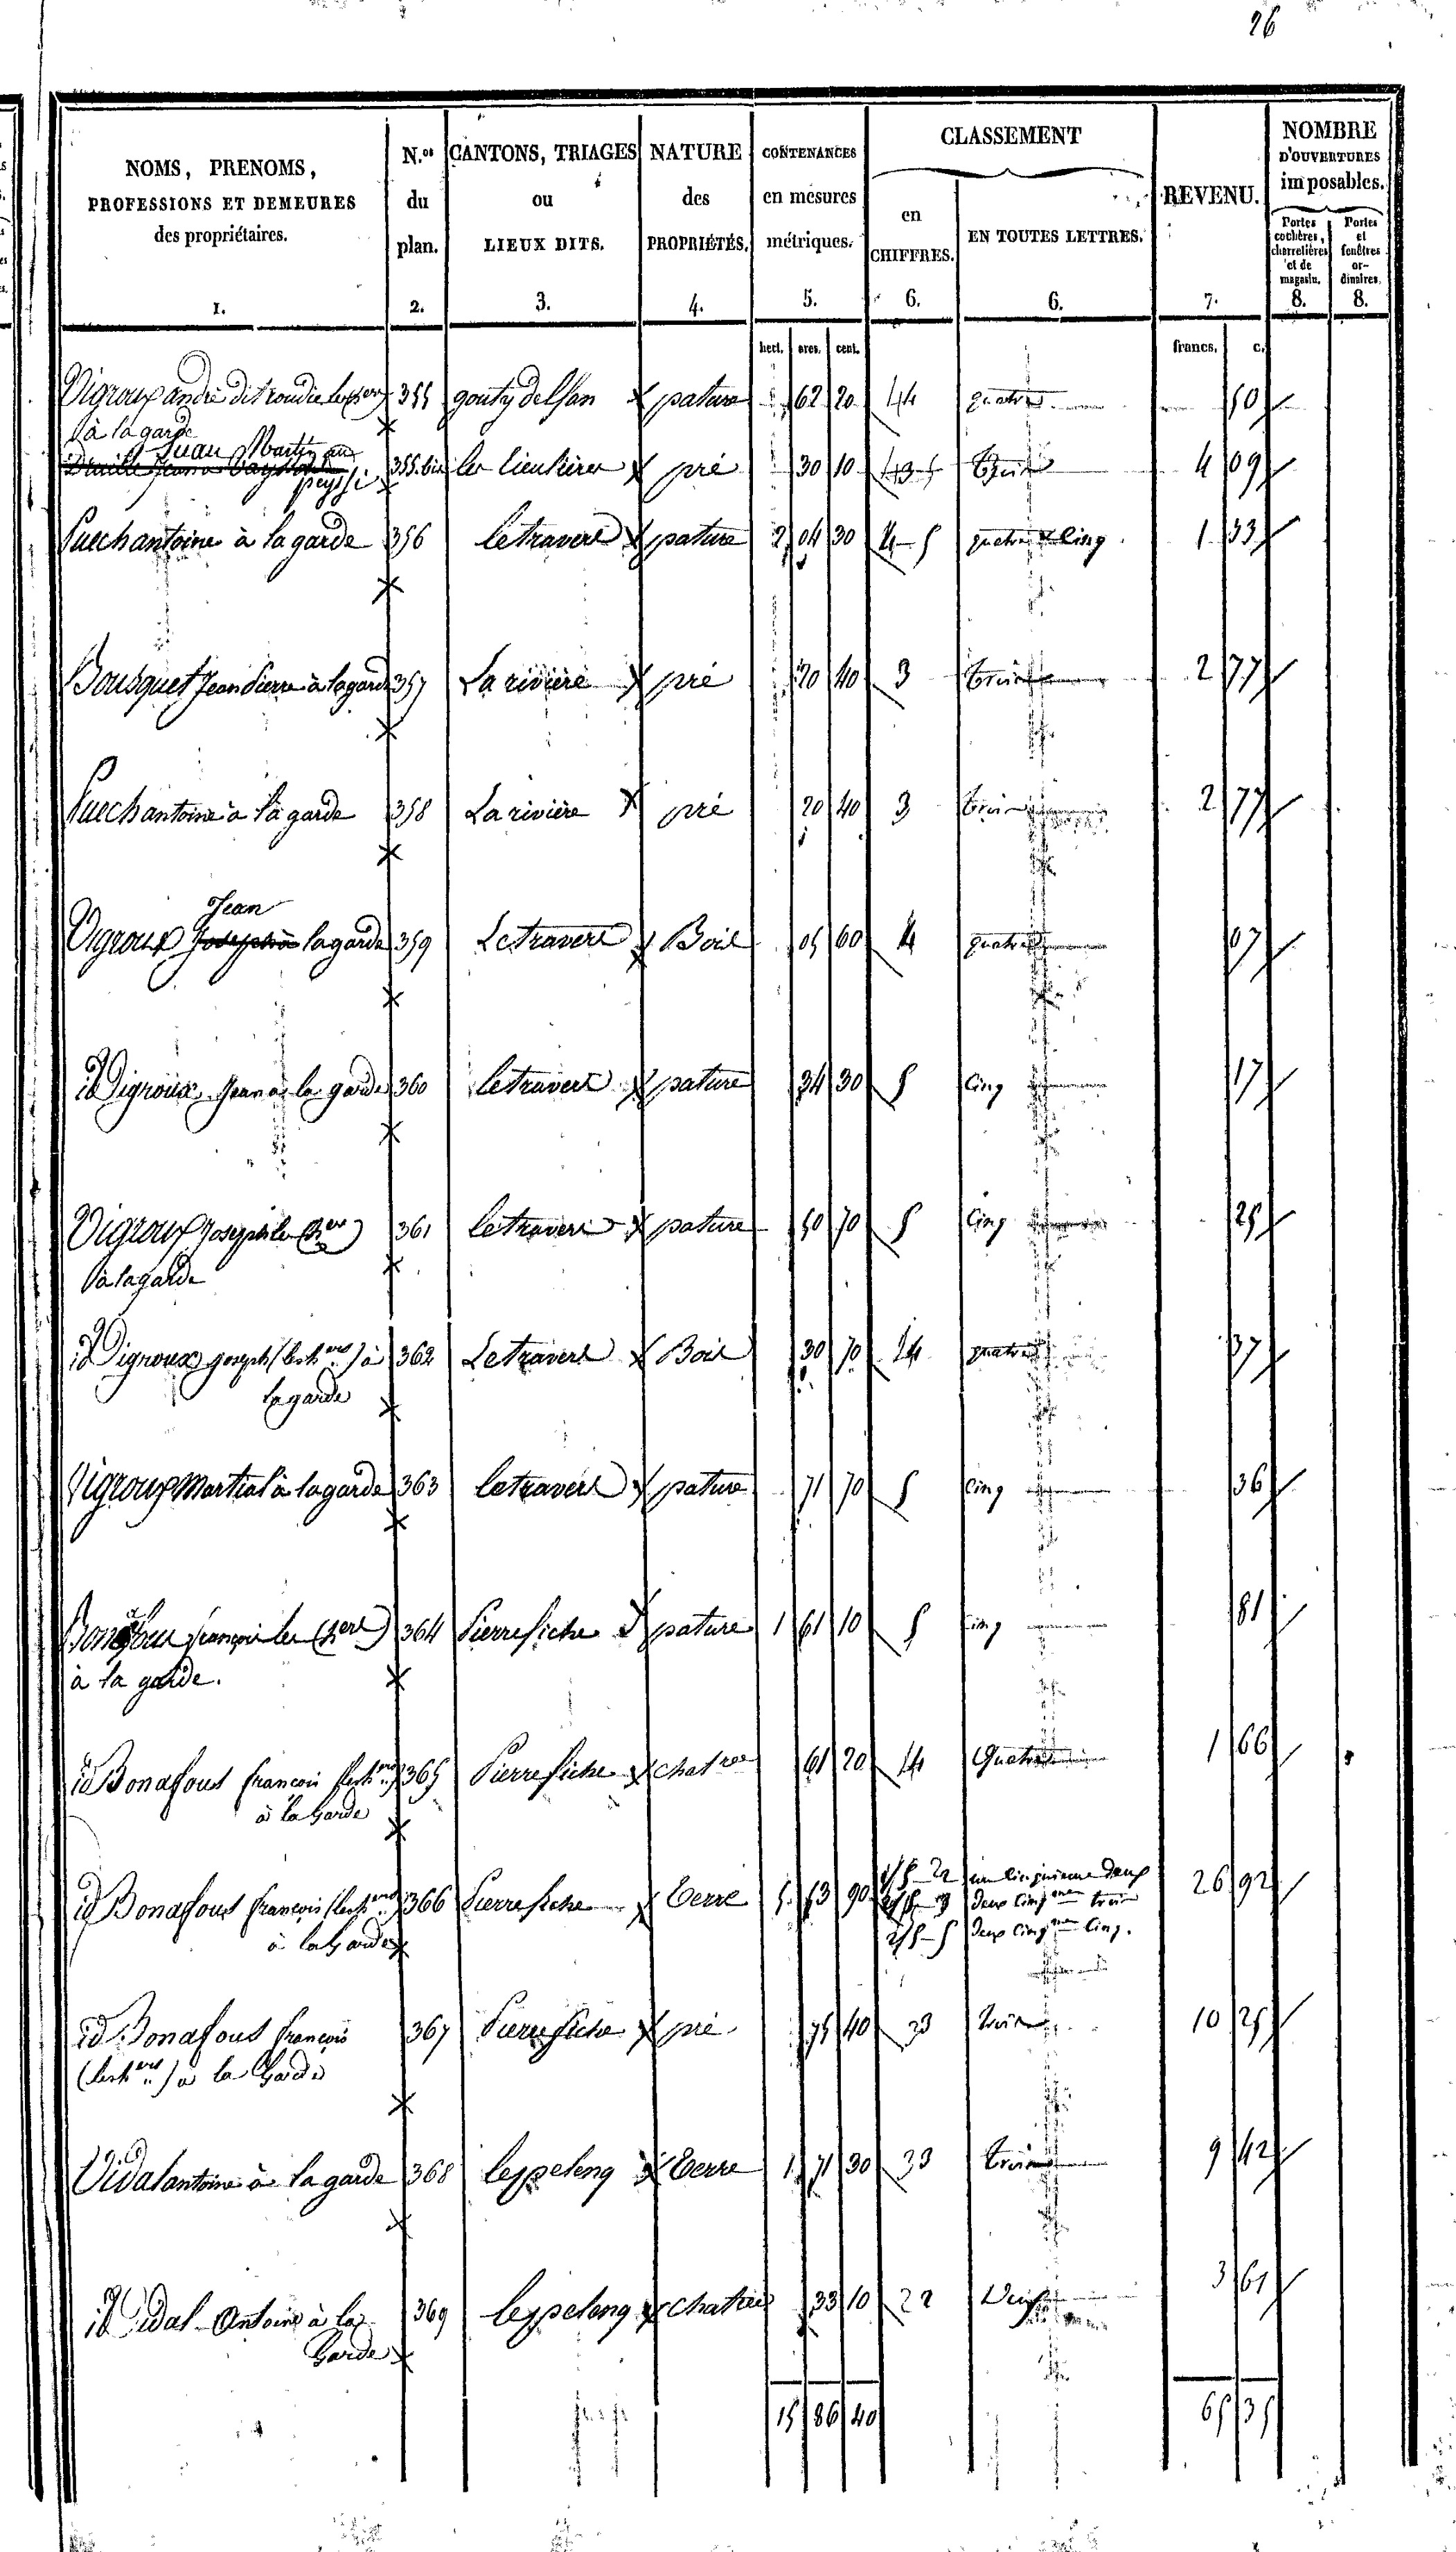 26
NOMS, PRENOMS, PROFESSIONS ET DEMEURES des propriétaires. 1. N.os du plan. 2. CANTONS, TRIAGES ou LIEUX DITS. 3. NATURE des PROPRIÉTÉS. 4. CONTENANCES en mesures métriques. 5. CLASSEMENT en CHIFFRES. 6. EN TOUTES LETTRES. 6. REVENU. 7. NOMBRE D'OUVERTURES imposables. Portes cochères, charretières et de magasin. 8. Portes et fenêtres ordinaires. 8.
hect. ares. cent. francs. c.
Vigroux andré dit 355 gouty delsan pature 62 20 4 quatre 50
à la garde
Juan Martin
355 bis pré 30 10 3 trois 4 09
Puech antoine à la garde 356 letravers pature 2 04 30 4-5 quatre & cinq 1 33
Bousquet Jean Pierre à lagarde 357 La rivière pré 20 40 3 trois 2 77
Puech antoine à la garde 358 La rivière pré 20 40 3 trois 2 77
Jean
Vigroux Joseph à lagarde 359 Letravers Bois 05 60 4 quatre 07
id Vigroux Jean à la garde 360 letravers pature 34 30 5 cinq 17
Vigroux Joseph les (hers) 361 letravers pature 50 70 5 cinq 25
à lagarde
id Vigroux joseph (les hers) à 362 Letravers Bois 30 70 4 quatre 37
lagarde
Vigroux Martial à lagarde 363 letravers pature 71 70 5 cinq 36
Bonafous françois les (hers) 364 Pierrefiche pature 1 61 10 5 cinq 81
à la garde.
id Bonafous françois (les hers) 365 Pierrefiche chatres 61 20 4 Quatre 1 66
à la Garde
id Bonafous françois (les hers) 366 Pierrefiche terre 5 13 90 1/5-2 un cinquieme deux 26 92
à la Garde 2/5-3 deux cinqmes trois
2/5-5 deux cinqmes cinq.
id Bonafous françois 367 Pierrefiche pré 75 40 3 trois 10 25
(les hers) à la Garde
Vidal antoine à la garde 368 leypeleng terre 1 71 30 3 trois 9 42
id Vidal Antoine à la 369 leypeleng chatres 33 10 2 Deux 3 61
Garde
15 86 40 65 35